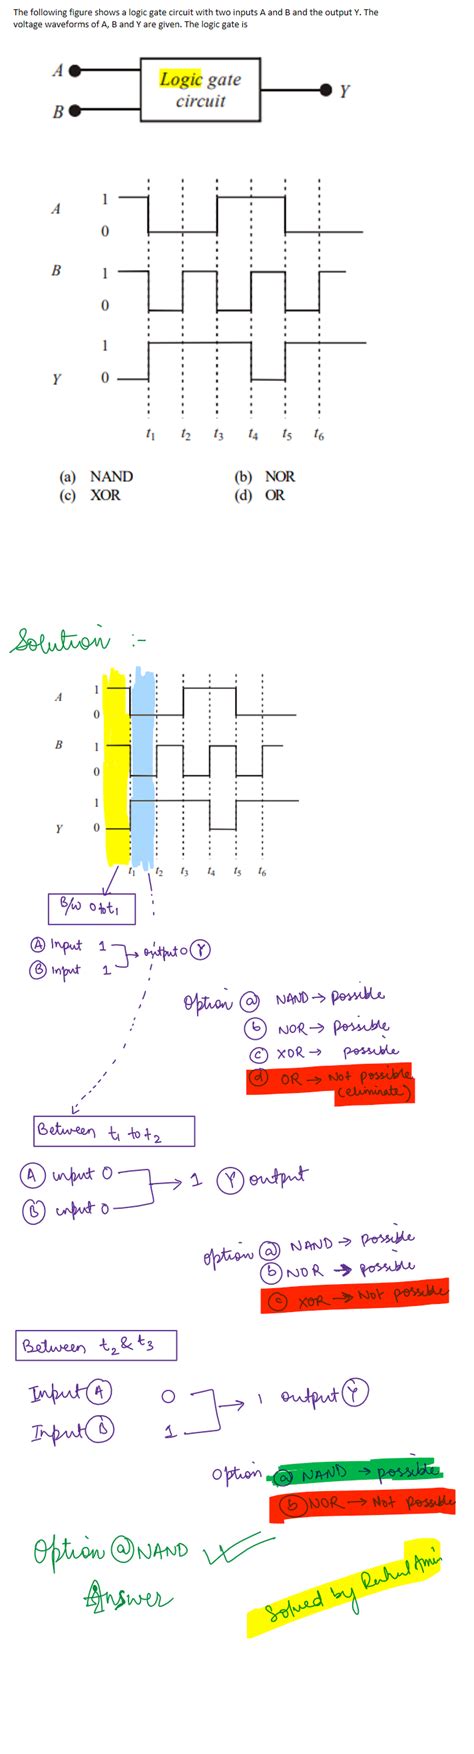 The following figure shows a logic gate circuit with two inputs A and B and the output Y. The
voltage waveforms of A, B and Y are given. The logic gate is
A
B
Logic gate
circuit
Y
A 1
0
B 1
0
1
Y 0
t1 t2 t3 t4 t5 t6
(a) NAND (b) NOR
(c) XOR (d) OR
Solution :-
A 1
0
B 1
0
1
Y 0
t1 t2 t3 t4 t5 t6
B/w 0 to t1
(A) Input 1 → output 0 (Y)
(B) Input 1
Option (a) NAND → possible
(b) NOR → possible
(c) XOR → possible
(d) OR → Not possible
(eliminate)
Between t1 to t2
(A) input 0 → 1 (Y) output
(B) input 0
option (a) NAND → possible
(b) NOR → possible
(c) XOR → Not possible
Between t2 & t3
Input (A) 0 → 1 output (Y)
Input (B) 1
Option (a) NAND → possible
(b) NOR → Not possible
Option (a) NAND ✓
Answer
Solved by Rahul Amin